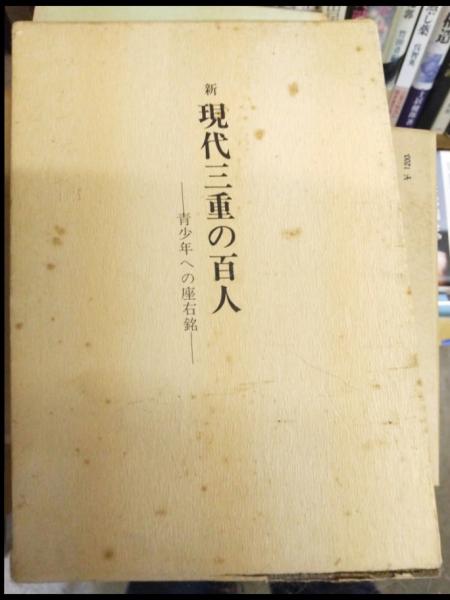 新
現代三重の百人
―青少年への座右銘―